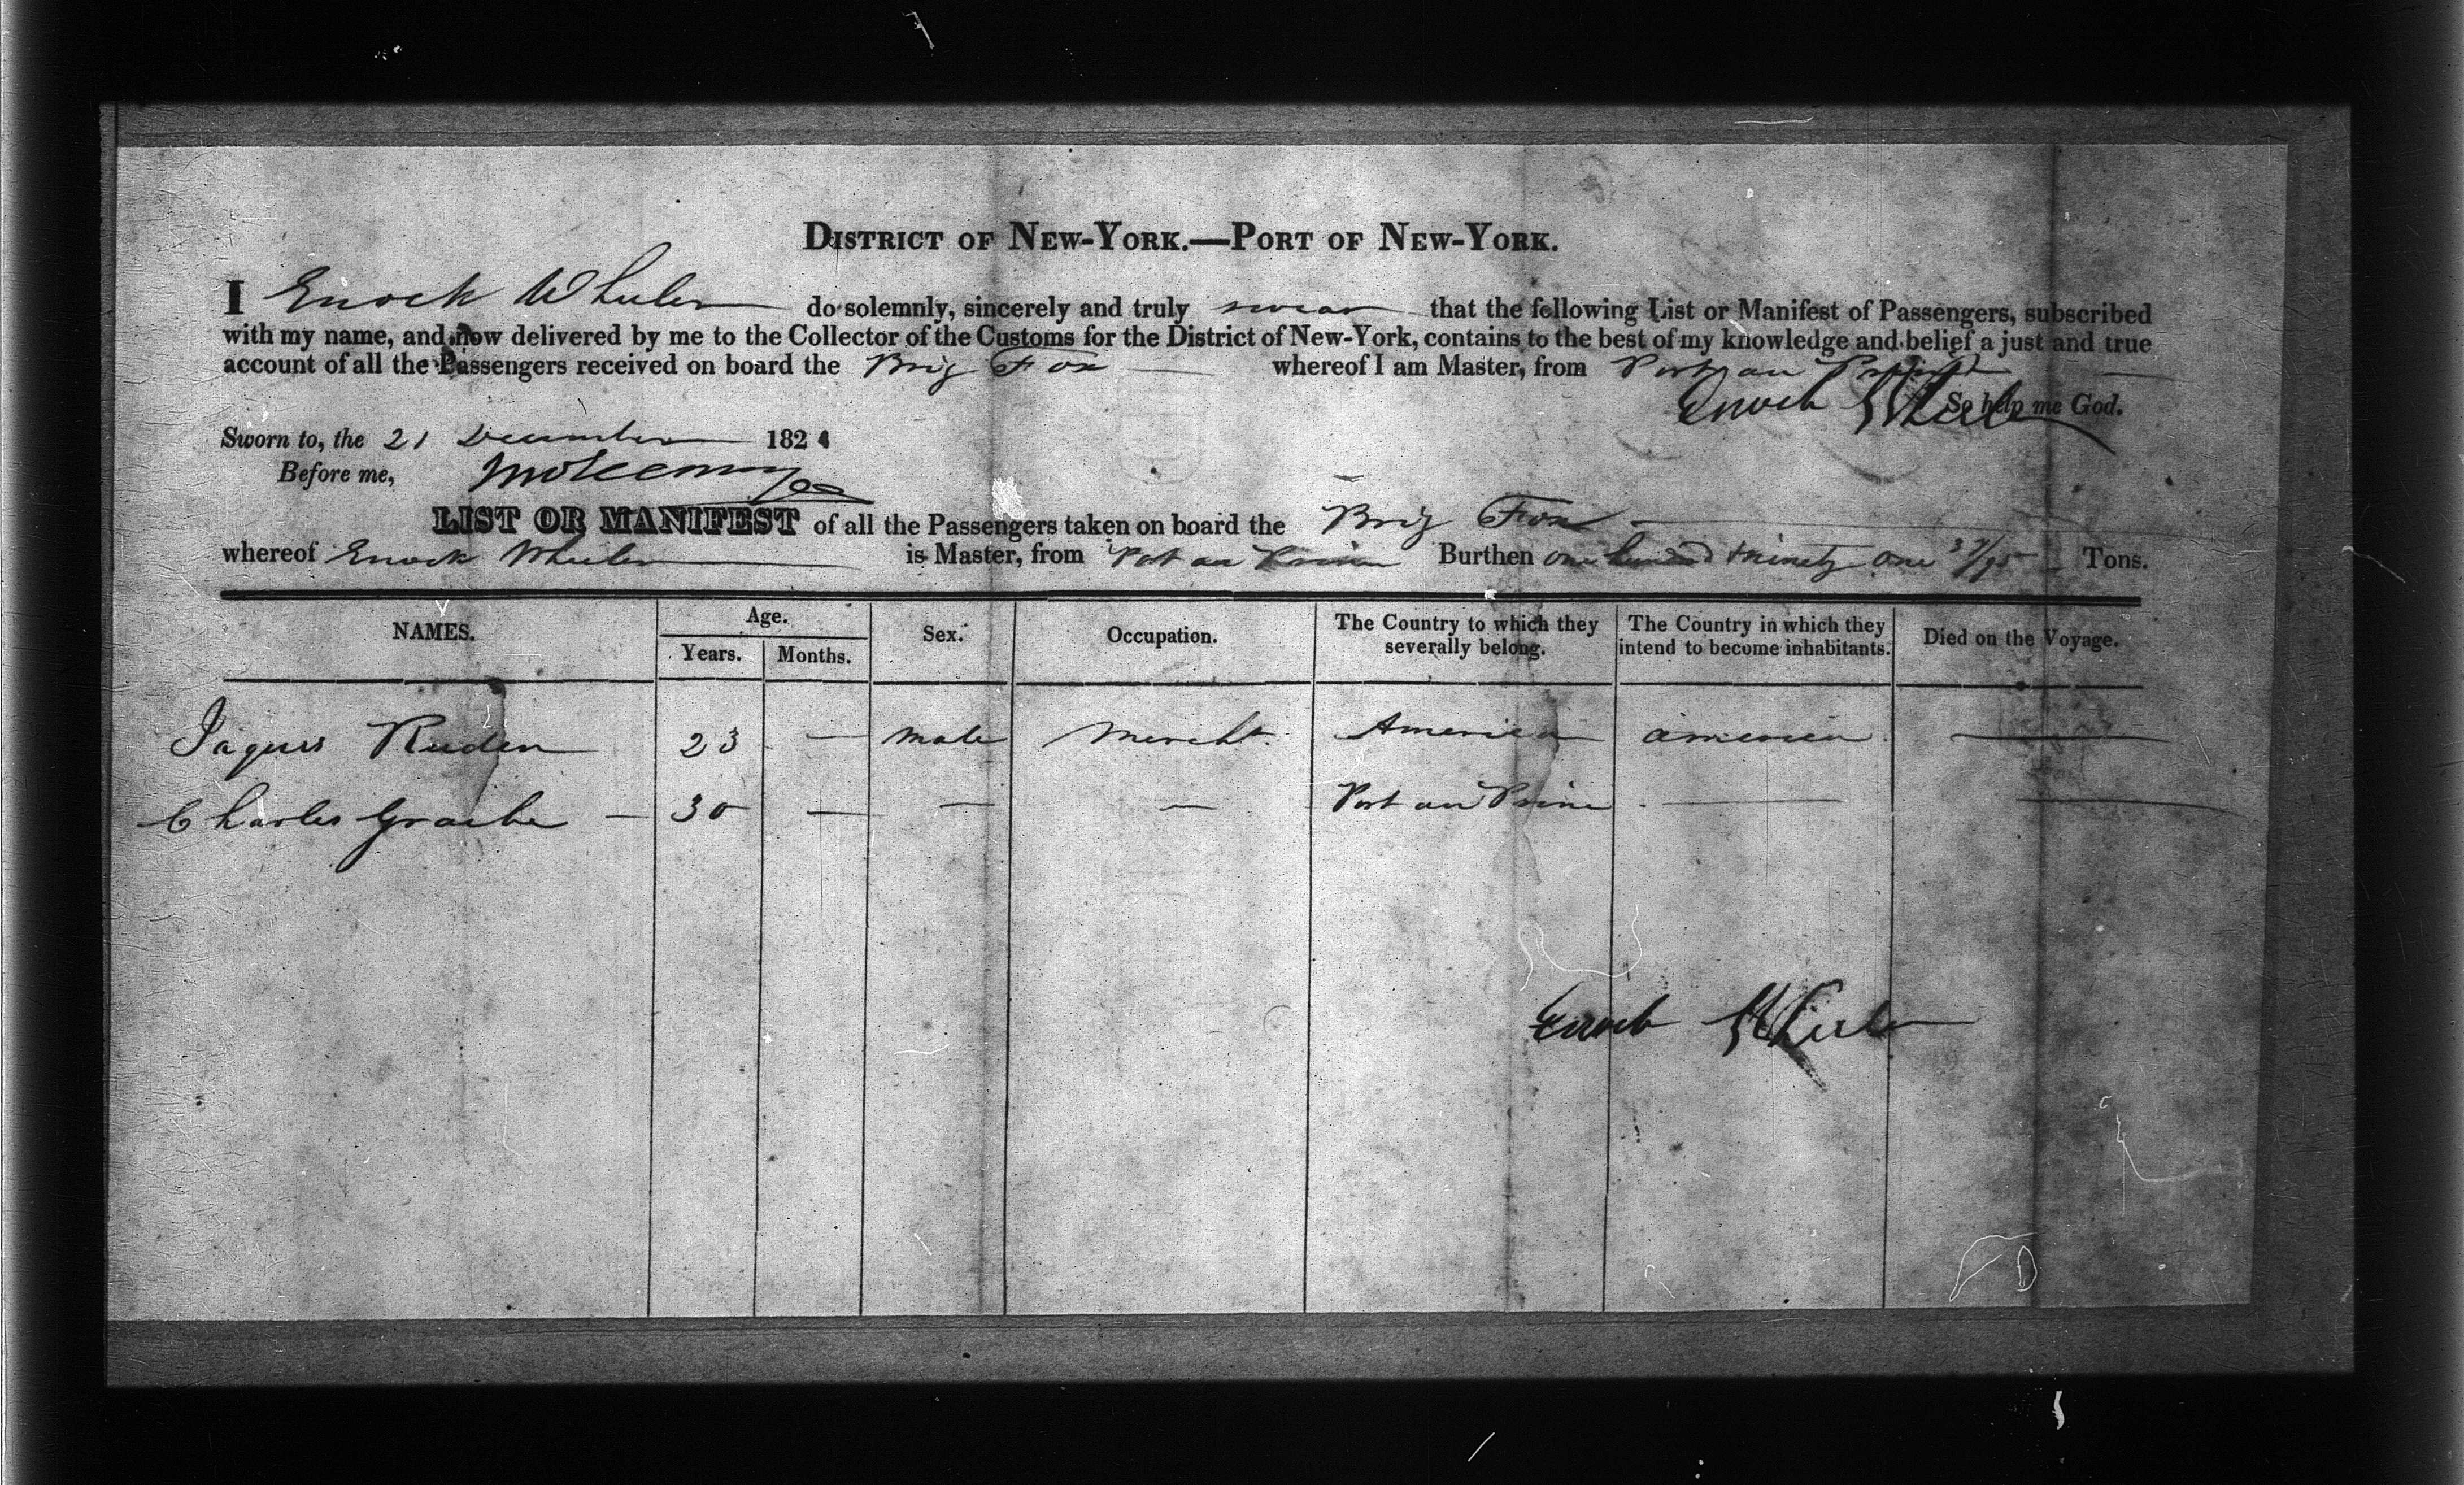 DISTRICT OF NEW-YORK.—PORT OF NEW-YORK.
I Enock Wheeler do solemnly, sincerely and truly swear that the following List or Manifest of Passengers, subscribed
with my name, and now delivered by me to the Collector of the Customs for the District of New-York, contains to the best of my knowledge and belief a just and true
account of all the Passengers received on board the Brig Fox whereof I am Master, from Port au Prince
Enoch Wheeler So help me God.
Sworn to, the 21 December 182
Before me,
LIST OR MANIFEST of all the Passengers taken on board the Brig Fox
whereof Enock Wheeler is Master, from Port au Prince Burthen One hundred & ninety one 37/95 Tons.
NAMES. Age. Sex. Occupation. The Country to which they severally belong. The Country in which they intend to become inhabitants. Died on the Voyage.
Years. Months.
Jaques Ruden 23 — male Mercht. America america —
Charles Graebe — 30 — — — Port au Prince — —
Enoch Wheeler